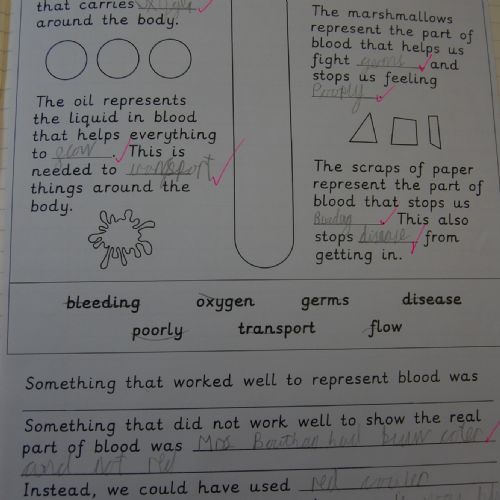 that carries oxygen
around the body.
The oil represents
the liquid in blood
that helps everything
to flow. This is
needed to transport
things around the
body.
The marshmallows
represent the part of
blood that helps us
fight germs and
stops us feeling
Poorly
The scraps of paper
represent the part of
blood that stops us
This also
stops disease from
getting in.
bleeding oxygen germs disease
poorly transport flow
Something that worked well to represent blood was
Something that did not work well to show the real
part of blood was Mrs had
and not red
Instead, we could have used red